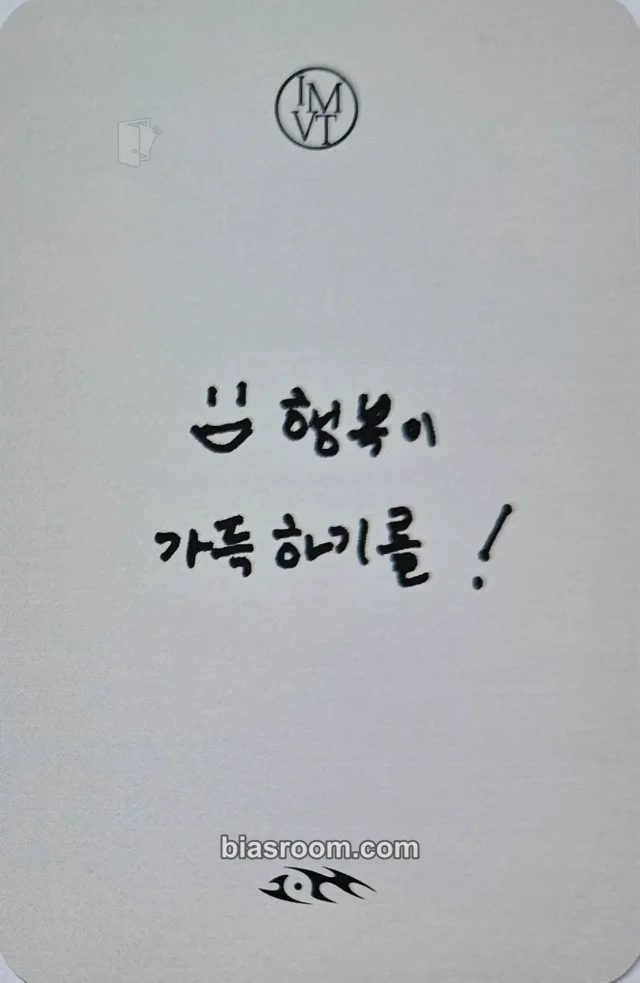 IM
VT
행복이
가득하기를 !
biasroom.com